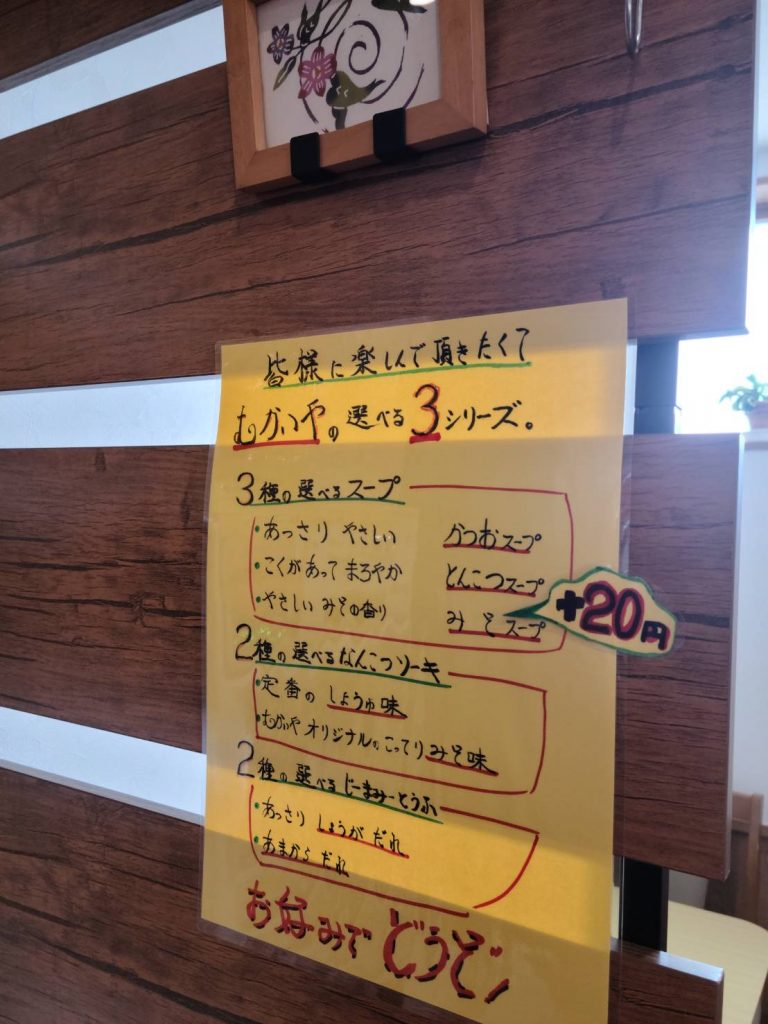 皆様に楽しんで頂きたくて
むかいやの選べる3シリーズ。
3種の選べるスープ
・あっさり やさしい かつおスープ
・こくがあって まろやか とんこつスープ
・やさしい みその香り みそスープ
+20円
2種の選べるなんこつソーキ
・定番の しょうゆ味
・むかいやオリジナルのこってりみそ味
2種の選べるじーまみーとうふ
・あっさり しょうがだれ
・あまからだれ
お好みでどうぞ!